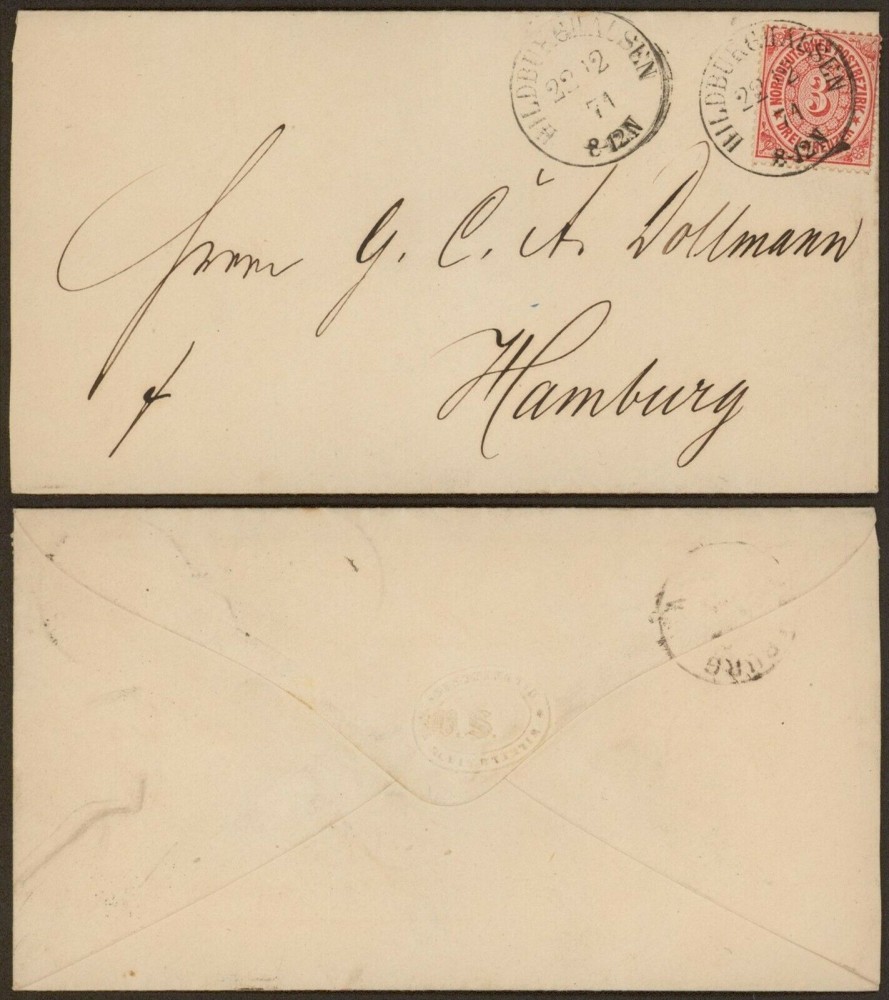 HILDBURGHAUSEN
22 12
71
8-12.N
HILDBURGHAUSEN
22 12
71
8-12.N
NORDDEUTSCHER POSTBEZIRK
3
DREI KREUZER
Herrn G. C. A. Dollmann
Hamburg
W.S.